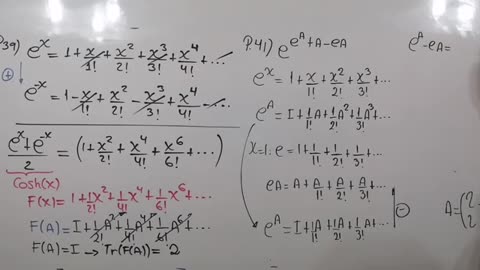 P.39) e^x = 1 + x/3! + x²/2! + x³/3! + x⁴/4! + ...
⊕ e^-x = 1 - x/1! + x²/2! - x³/3! + x⁴/4! - ...
(e^x + e^-x)/2 = (1 + x²/2! + x⁴/4! + x⁶/6! + ...)
Cosh(x)
F(x) = 1 + 1/2! x² + 1/4! x⁴ + 1/6! x⁶ + ...
F(A) = I + 1/2! A² + 1/4! A⁴ + 1/6! A⁶ + ...
F(A) = I → Tr(F(A)) = 2
P.41) e^(e^A + A - eA)
e^x = 1 + x/1! + x²/2! + x³/3! + ...
e^A = I + 1/1! A + 1/2! A² + 1/3! A³ + ...
x=1: e = 1 + 1/1! + 1/2! + 1/3! + ...
eA = A + A/1! + A/2! + A/3! + ...
⊖
e^A = I + 1/1! A + 1/2! A + 1/3! A + ...
e^A - eA =
A = (2
2